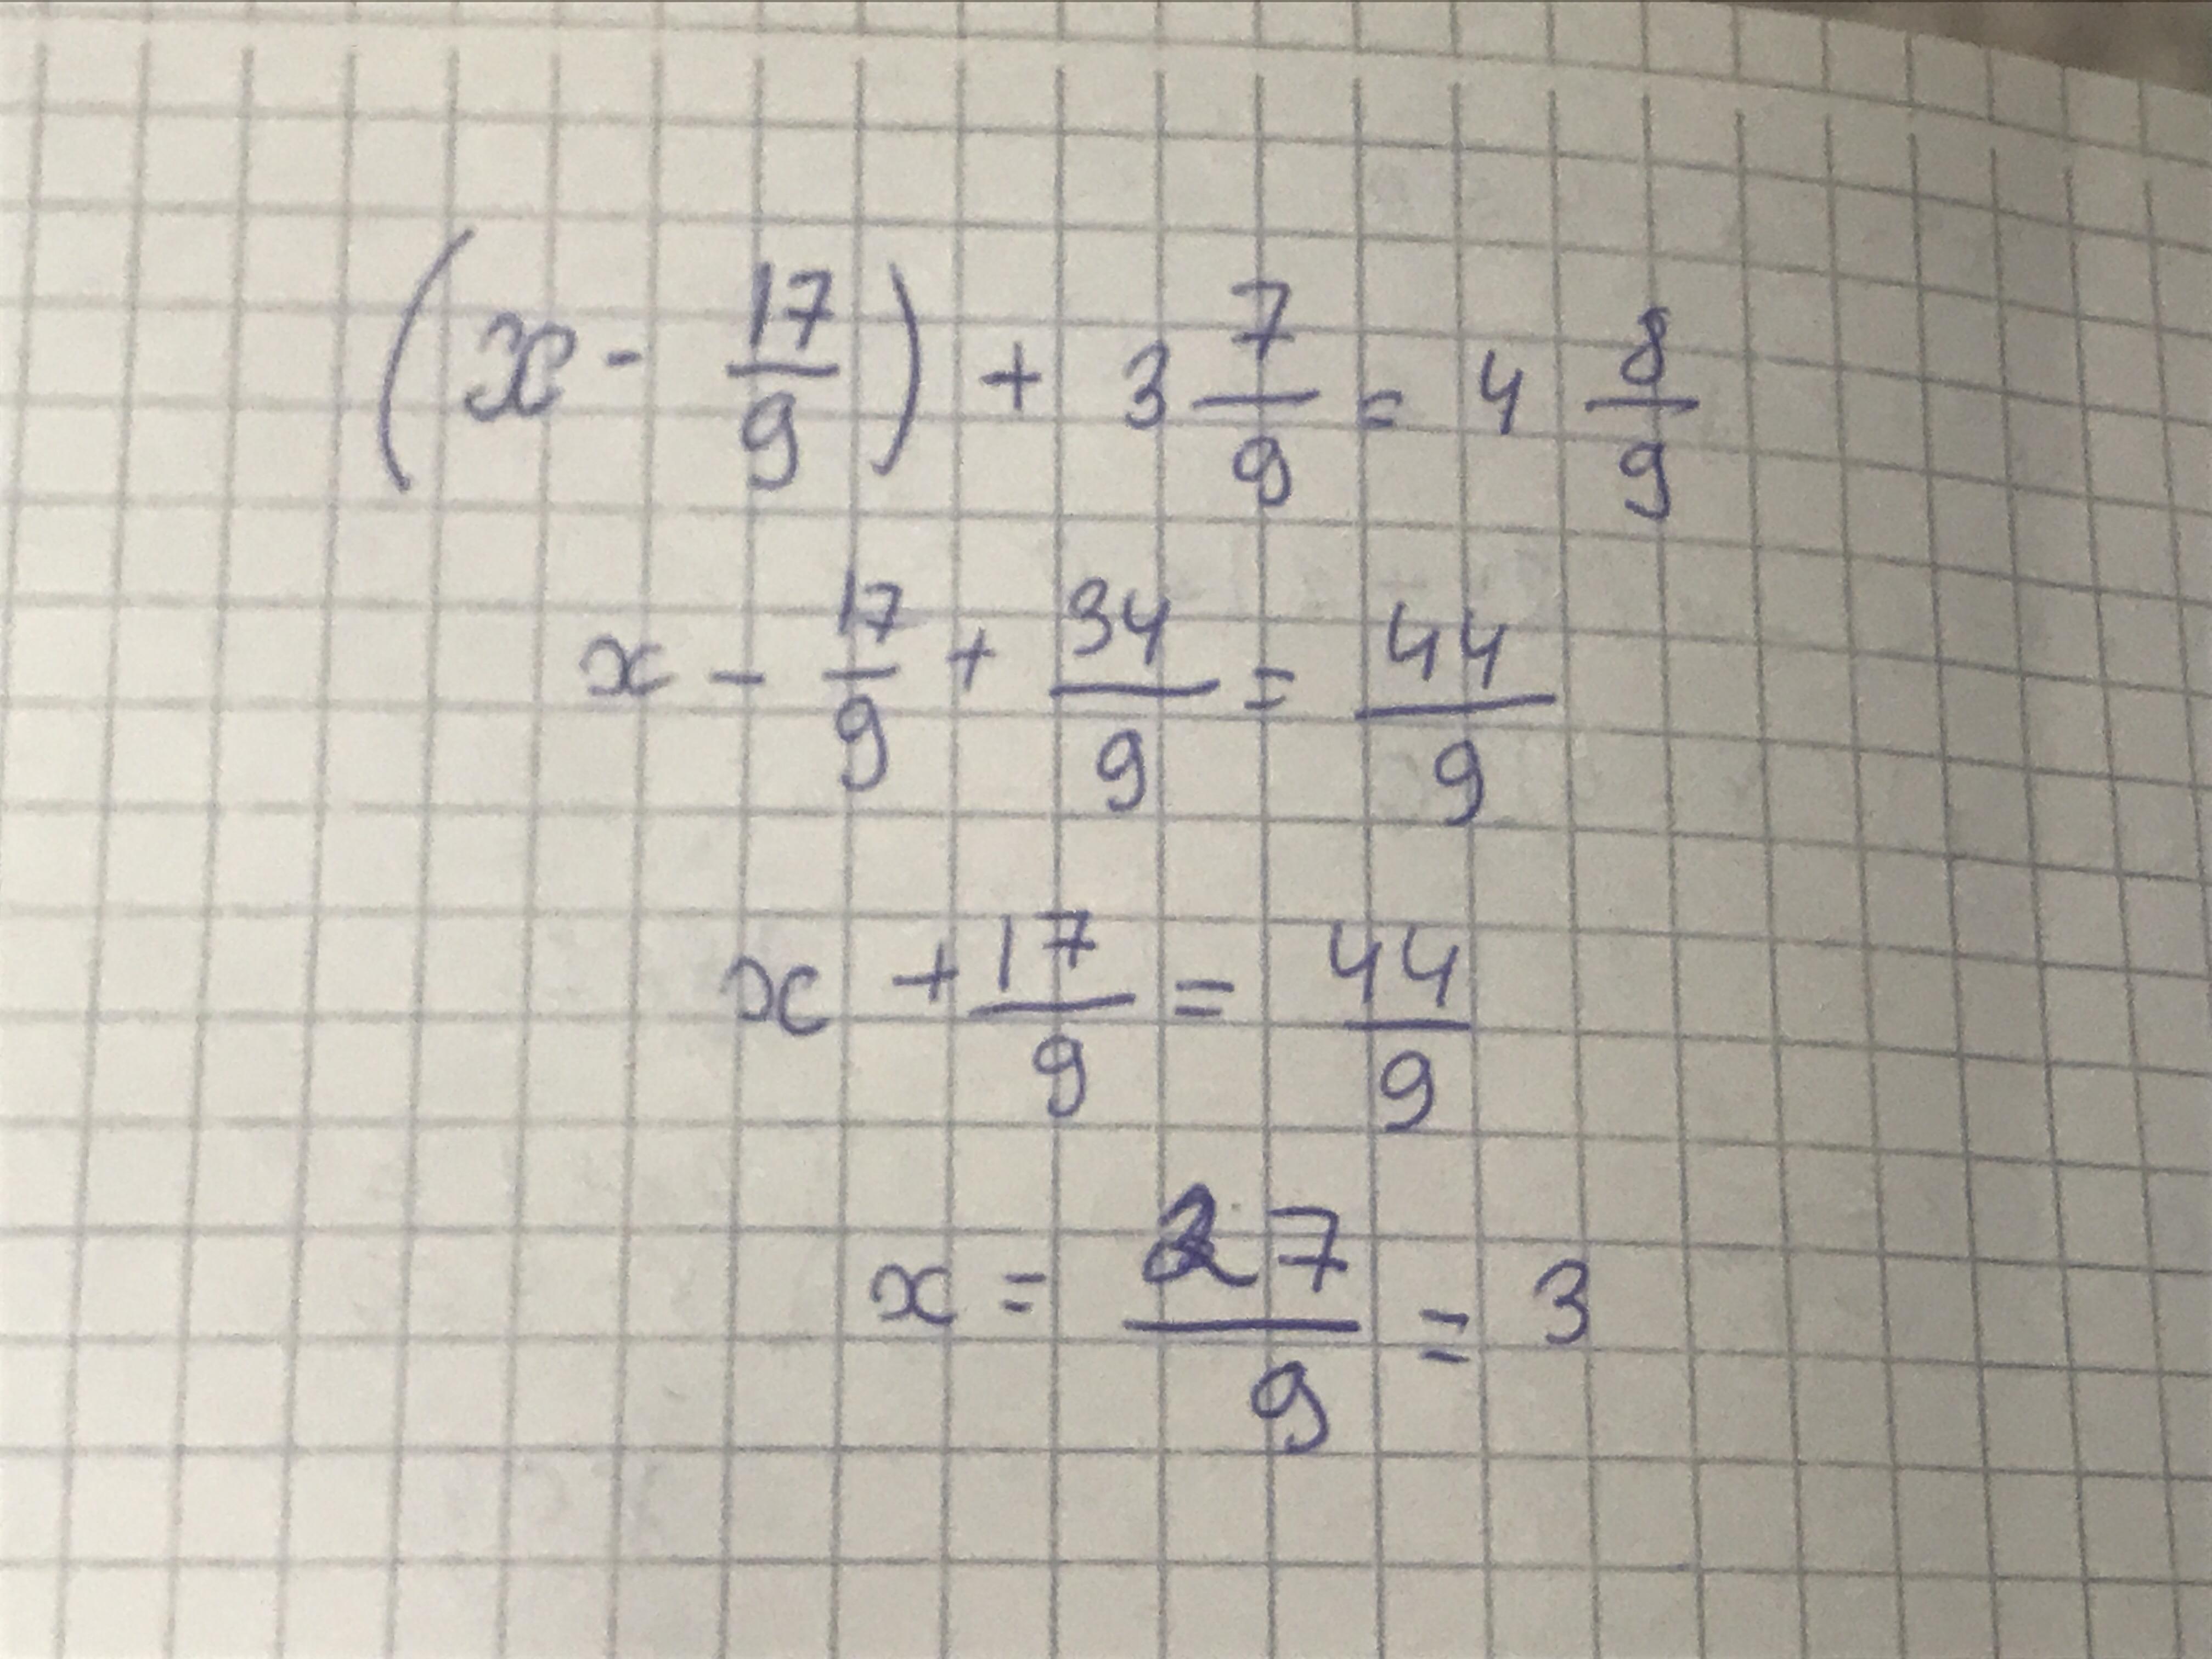 (x - 17/9) + 3 7/9 = 4 8/9
x - 17/9 + 34/9 = 44/9
x + 17/9 = 44/9
x = 27/9 = 3